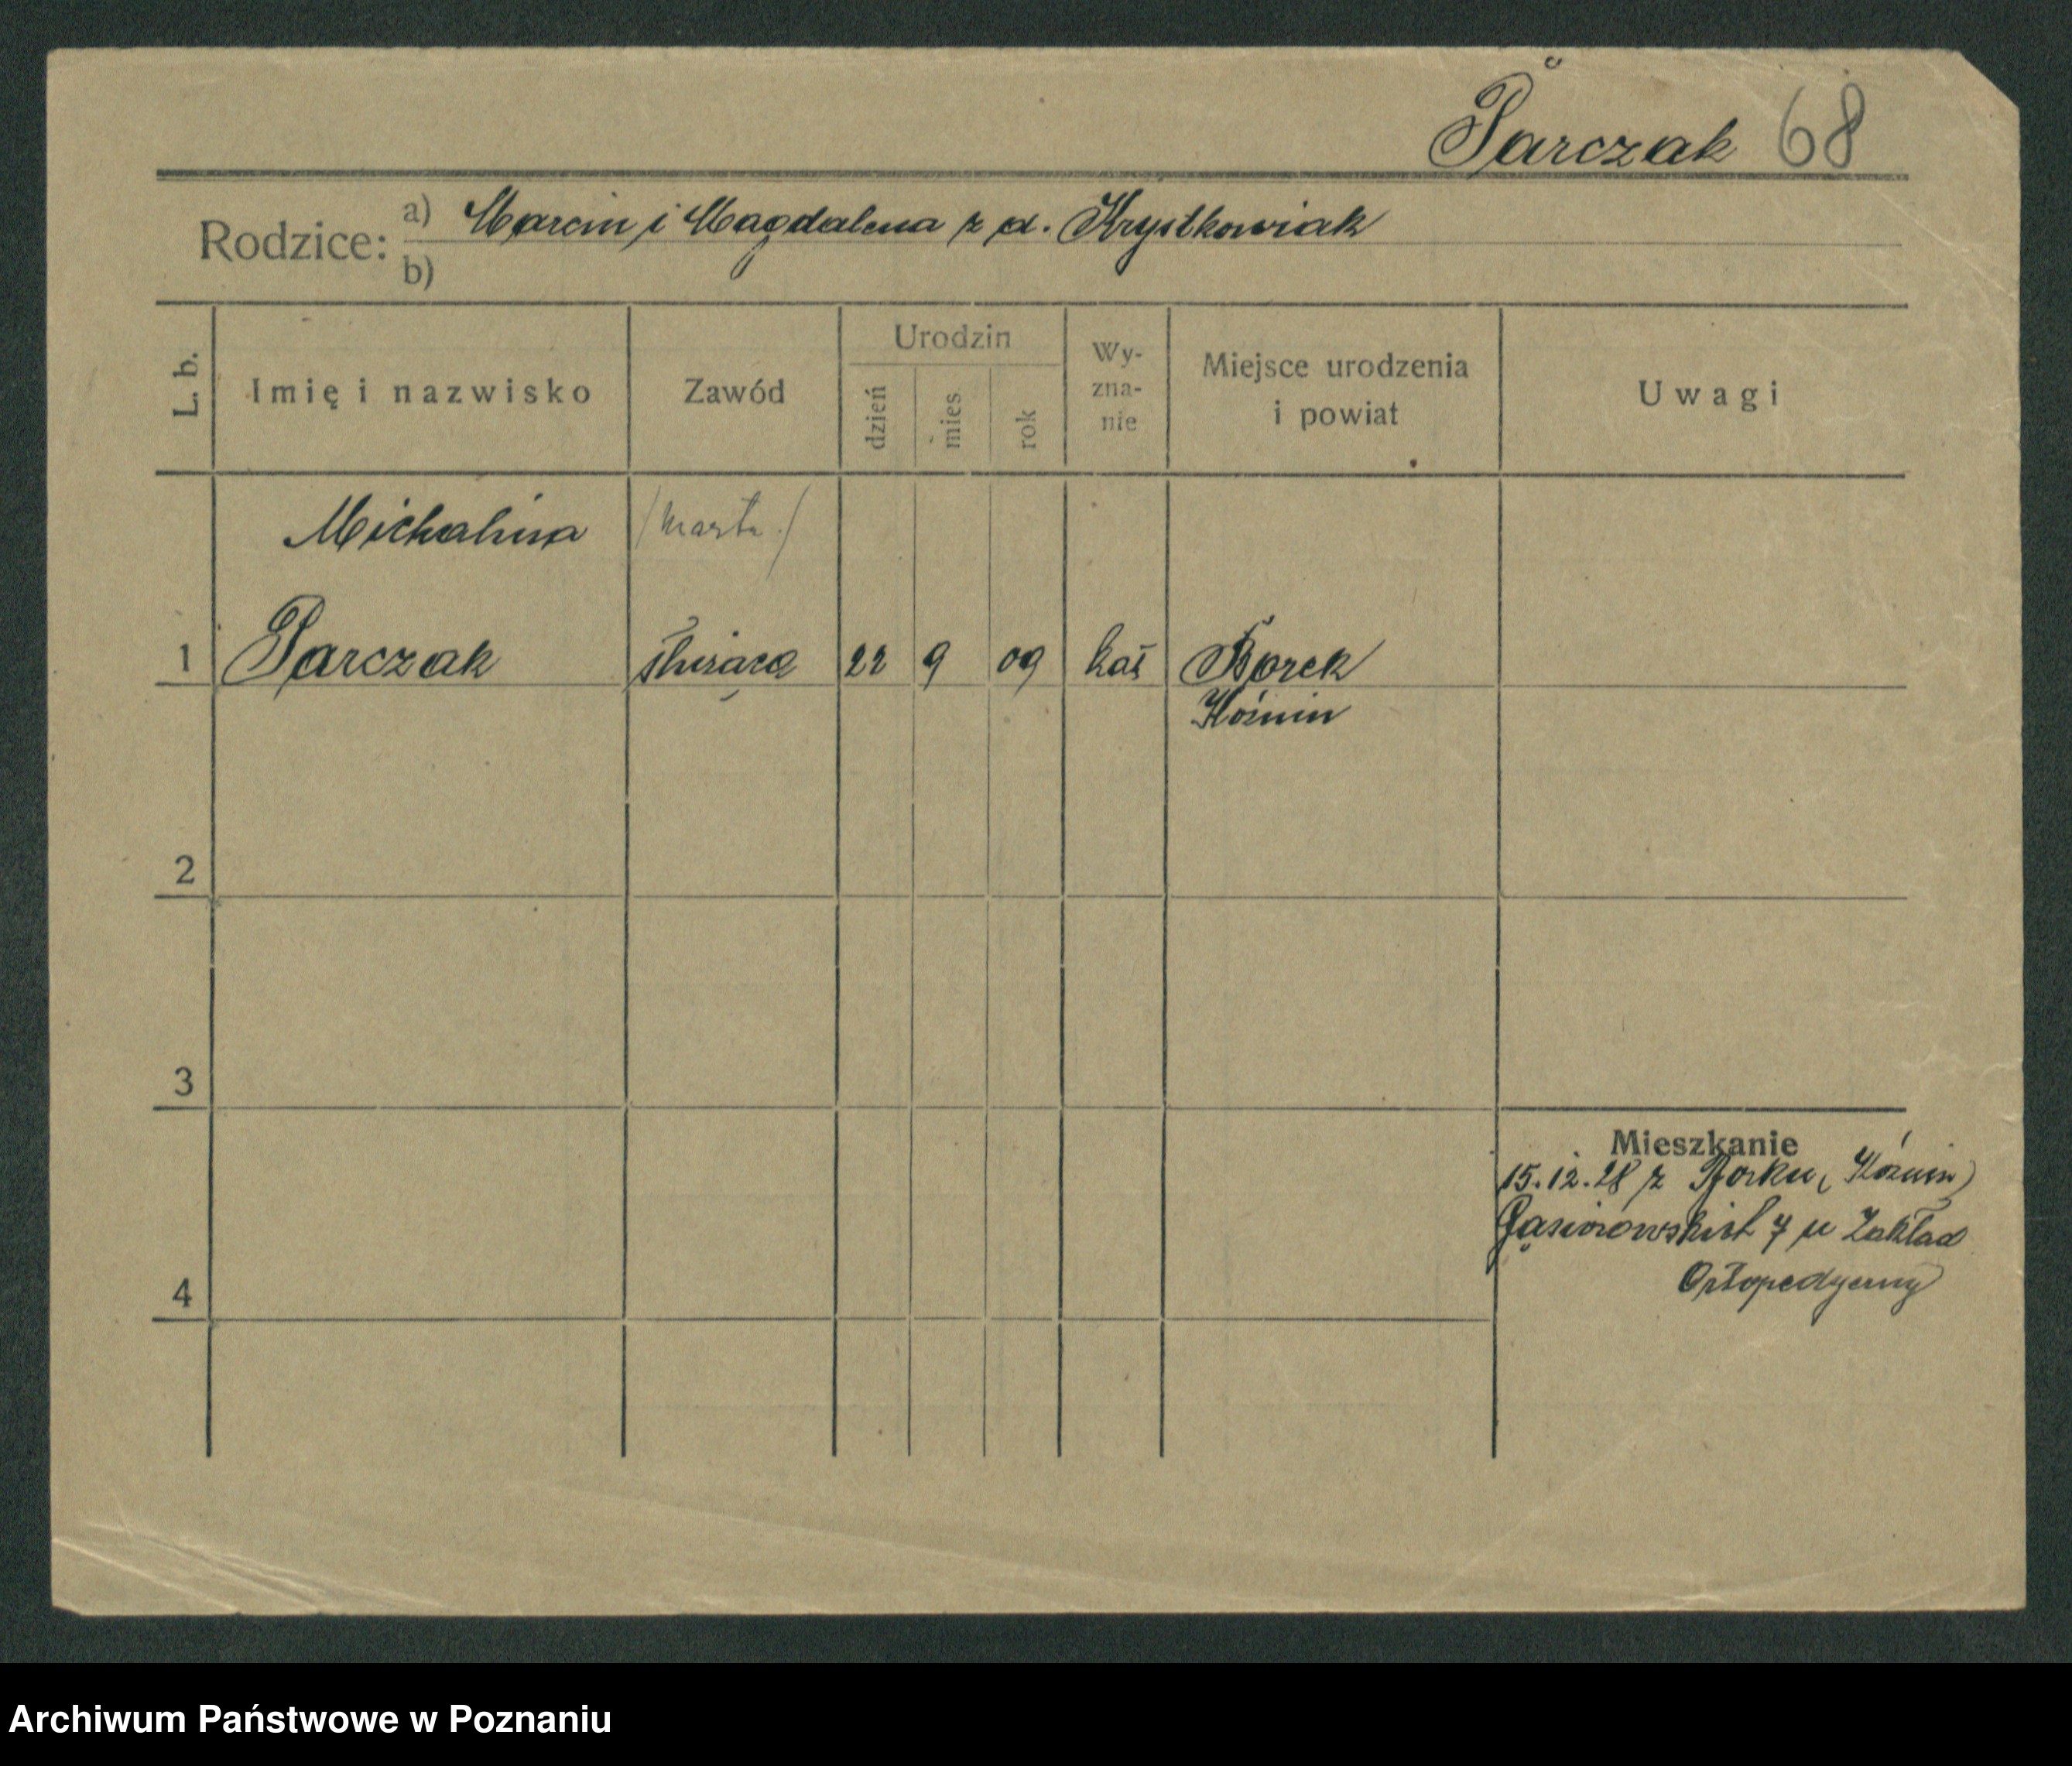 Parczak 68
Rodzice: a) Marcin i Magdalena z d. Krystkowiak
b)
L. b. Imię i nazwisko Zawód Urodzin dzień mies rok Wy-zna-nie Miejsce urodzenia i powiat Uwagi
Michalina (Marta)
1 Parczak służąca 22 9 09 kat Borek
Koźmin
2
3
Mieszkanie
15.12.28 z Borku (Koźmin)
Gąsiorowskich 7 u Zakład
4 Ortopedyczny
Archiwum Państwowe w Poznaniu